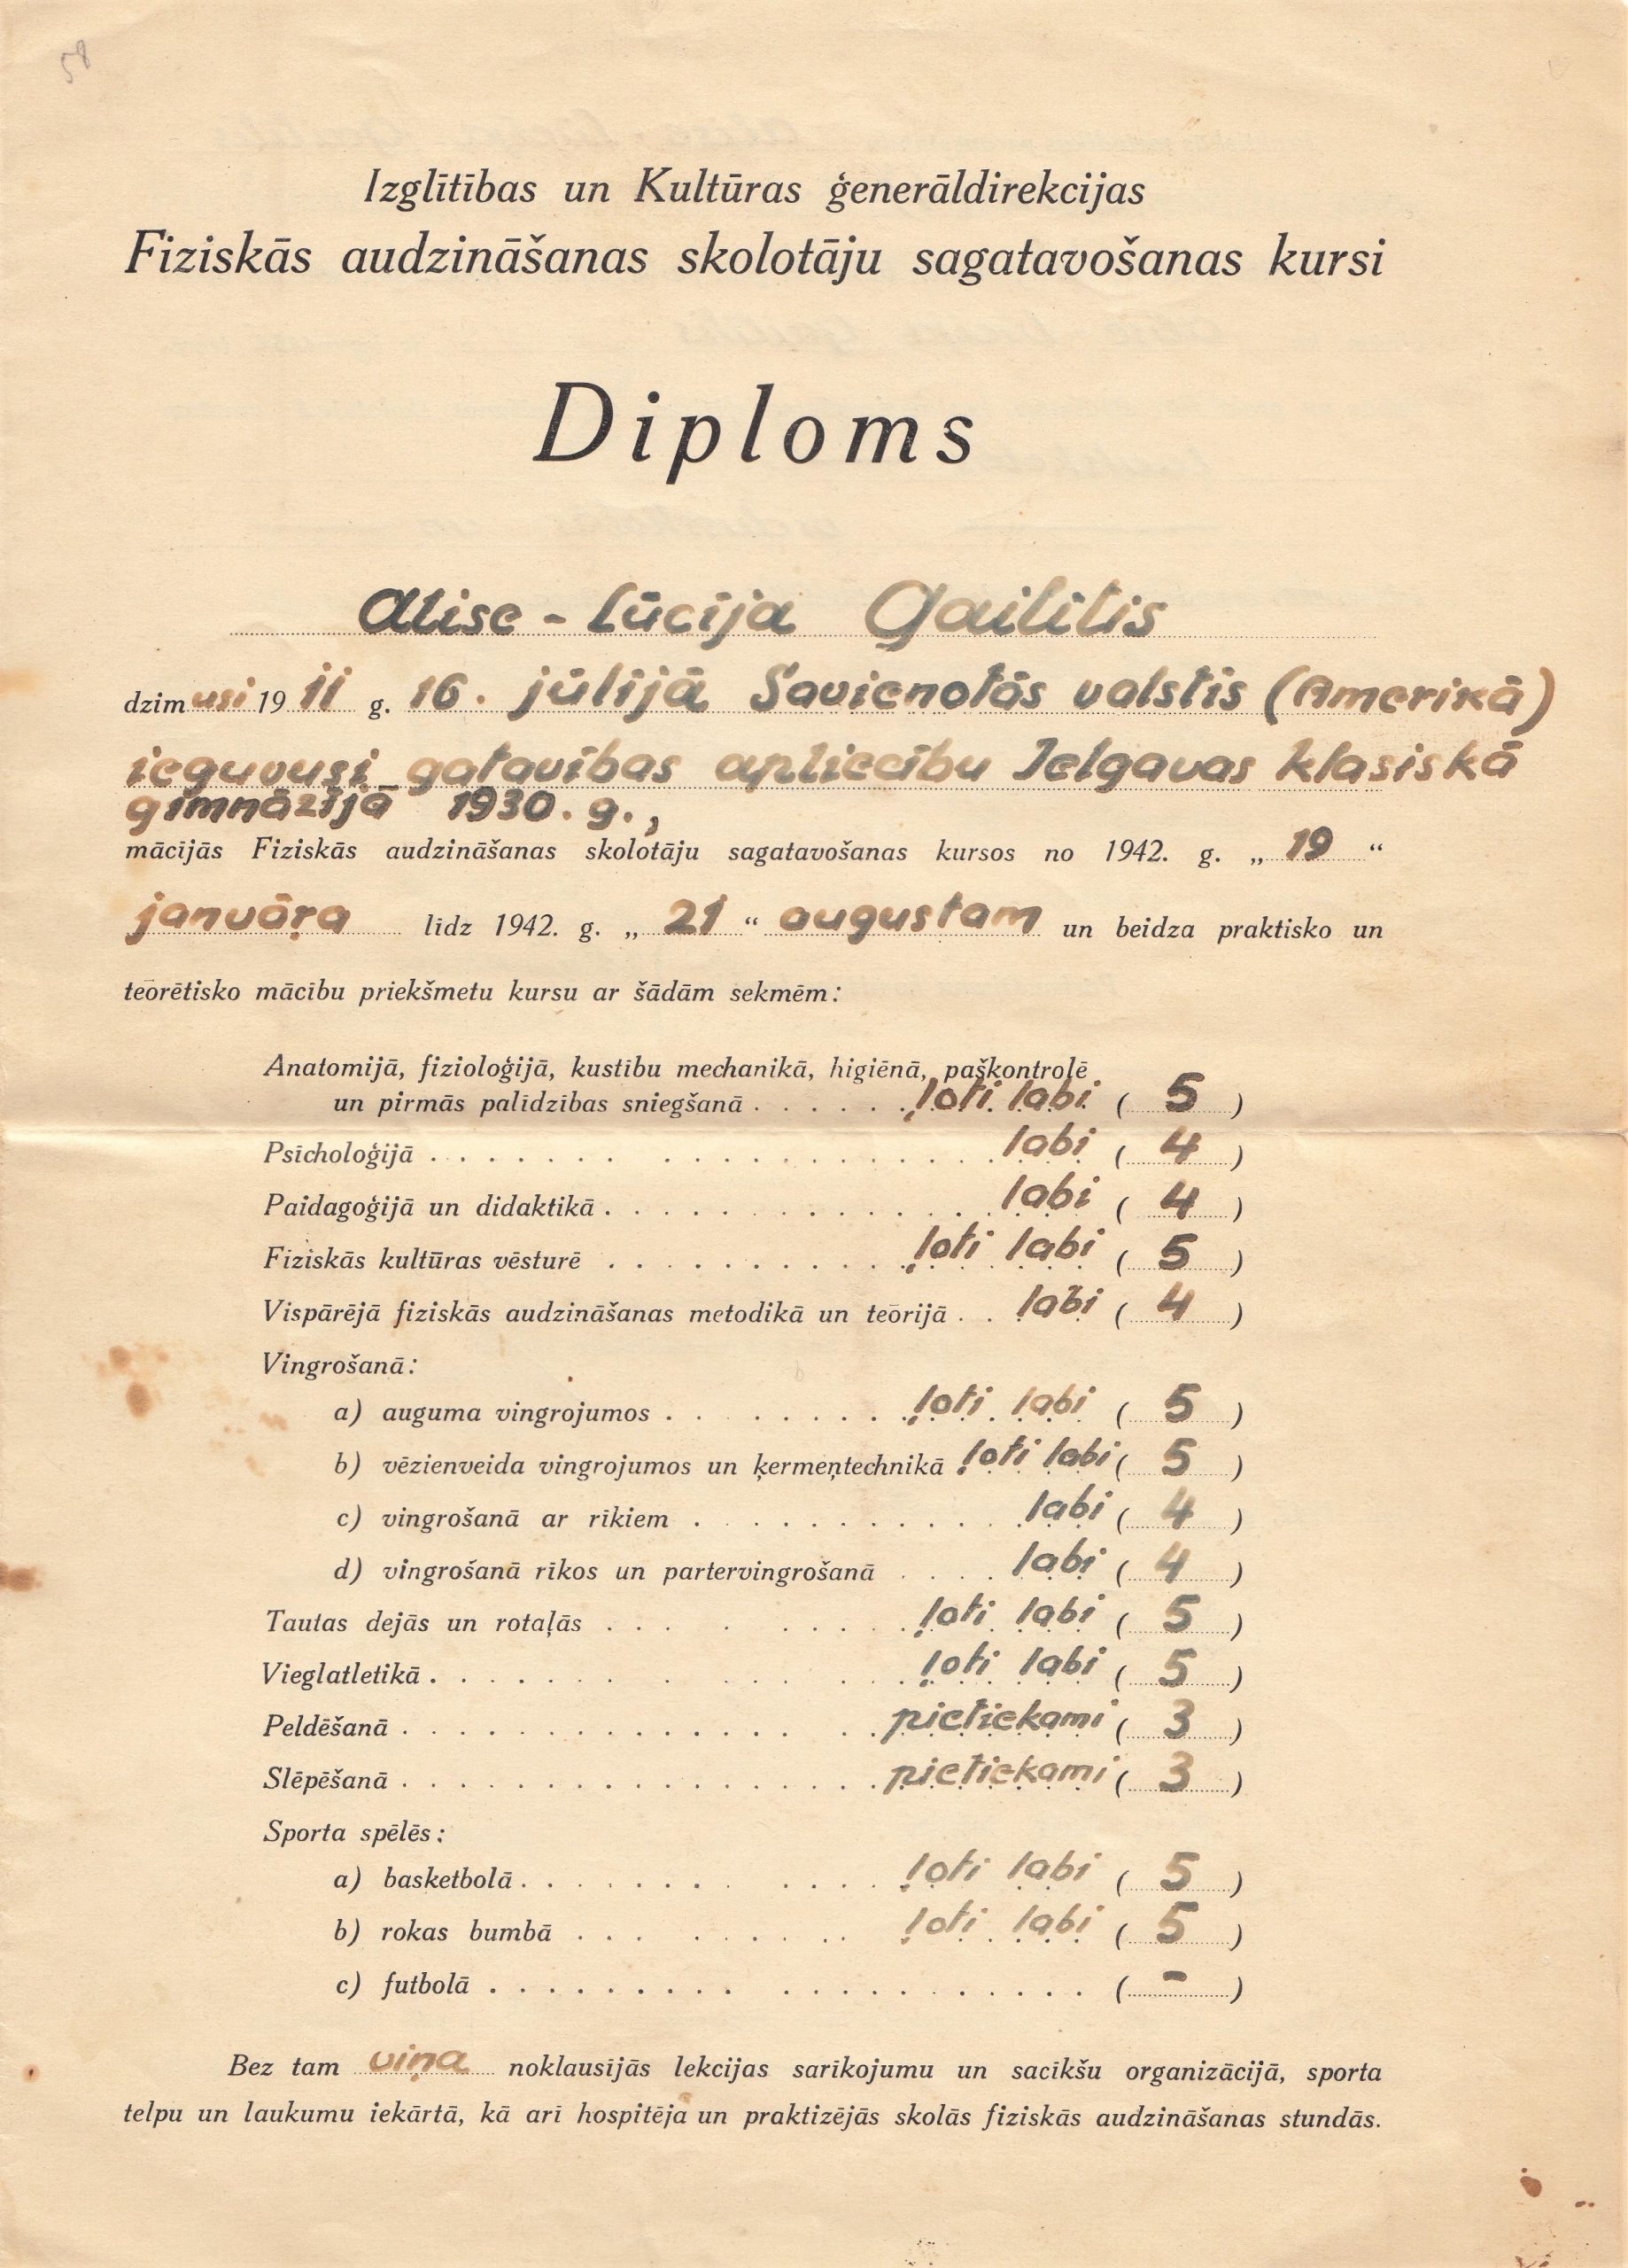 58
Izglītības un Kultūras ģenerāldirekcijas
Fiziskās audzināšanas skolotāju sagatavošanas kursi
Diploms
Alise - Lūcija Gailitis
dzimusi 1911 g. 16. jūlijā Savienotās valstīs (Amerikā)
ieguvusi gatavības apliecību Jelgavas klasiskā
gimnāzijā 1930. g.,
mācijās Fiziskās audzināšanas skolotāju sagatavošanas kursos no 1942. g. „ 19 “
janvāŗa līdz 1942. g. „ 21 “ augustam un beidza praktisko un
teōrētisko mācību priekšmetu kursu ar šādām sekmēm:
Anatomijā, fizioloģijā, kustību mechanikā, higiēnā, paškontrolē
un pirmās palīdzības sniegšanā . . . . . . ļoti labi ( 5 )
Psīcholoģijā . . . . . . . . . . labi ( 4 )
Paidagoģijā un didaktikā . . . . . . . . . . labi ( 4 )
Fiziskās kultūras vēsturē . . . . . . . . . . ļoti labi ( 5 )
Vispārējā fiziskās audzināšanas metodikā un teōrijā . . labi ( 4 )
Vingrošanā:
a) auguma vingrojumos . . . . . . . . ļoti labi ( 5 )
b) vēzienveida vingrojumos un ķermeņtechnikā ļoti labi ( 5 )
c) vingrošanā ar rīkiem . . . . . . . . . . labi ( 4 )
d) vingrošanā rīkos un partervingrošanā . . . . labi ( 4 )
Tautas dejās un rotaļās . . . . . . . . ļoti labi ( 5 )
Vieglatletikā . . . . . . . . . . ļoti labi ( 5 )
Peldēšanā . . . . . . . . . . pietiekami ( 3 )
Slēpēšanā . . . . . . . . . . pietiekami ( 3 )
Sporta spēlēs:
a) basketbolā . . . . . . . . . . ļoti labi ( 5 )
b) rokas bumbā . . . . . . . . ļoti labi ( 5 )
c) futbolā . . . . . . . . . . ( – )
Bez tam viņa noklausījās lekcijas sarīkojumu un sacīkšu organizācijā, sporta
telpu un laukumu iekārtā, kā arī hospitēja un praktizējās skolās fiziskās audzināšanas stundās.